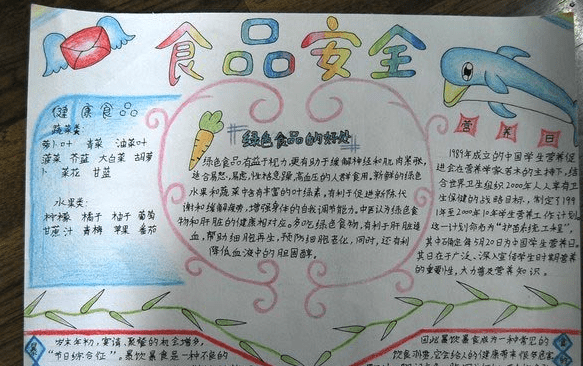 食品安全
健康食品
蔬菜类:
萝卜叶 青菜 油菜叶
菠菜 芥蓝 大白菜 胡萝
卜 菜花 甘蓝
水果类:
柠檬 橘子 柚子 葡萄
甘蔗汁 青梅 苹果 番茄
绿色食品的好处
绿色食品有益于视力,更有助于缓解神经和肌肉紧张,
适合易怒,易虑,性格急躁,高血压的人群食用,新鲜的绿色
水果和蔬菜中含有丰富的叶绿素,有利于促进新陈代
谢和缓解疲劳,增强身体的自我调节能力,中医认为绿色食
物和肝脏的健康相对应。多吃绿色食物,有利于肝脏造
血,帮助细胞再生,预防细胞老化,同时,还有利
降低血液中的胆固醇。
营养日
1989年成立的中国学生营养促
进会在营养学家 的主持下,结
合世界卫生组织2000年人人享有卫
生保健的战略目标,制定了199
1年至2000年10年学生营养工作计划
这一计划命名为"护苗系统工程",
其中确定每5月20日为中国学生营养日。
其目在于广泛、深入宣传学生时期营养
的重要性,大力普及营养知识。
岁末年初,宴请、聚餐的机会增多,
"节日综合征"。暴饮暴食是一种不良的
因此暴饮暴食成为一种常见的
饮食习惯,它会给人的健康带来很多危害